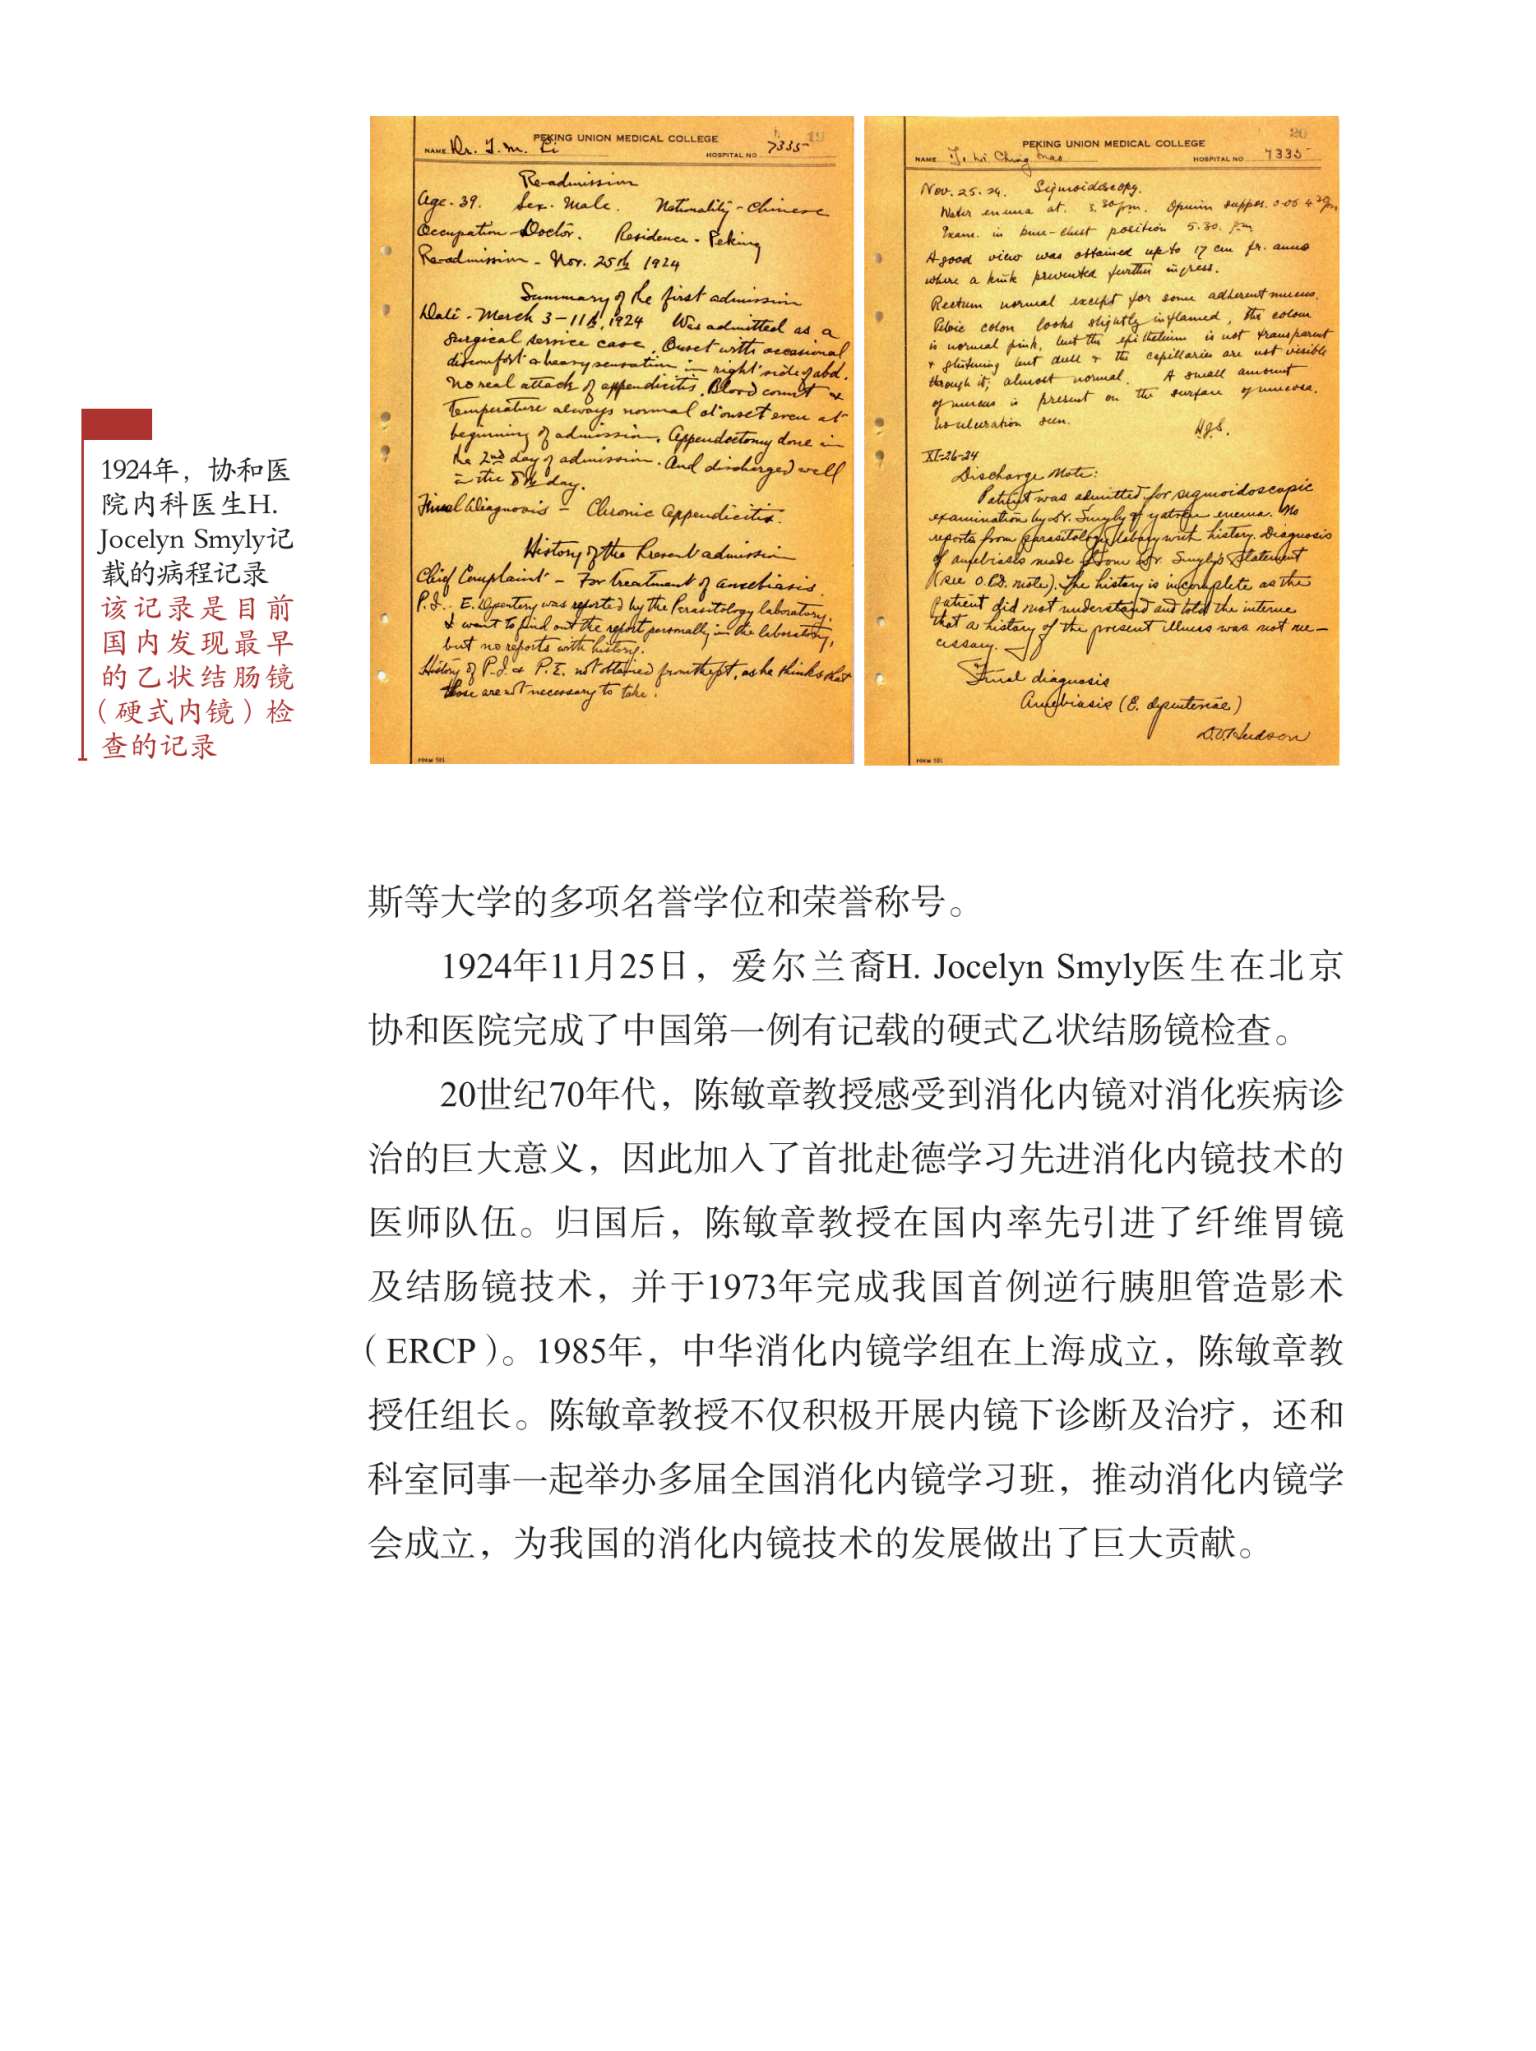 PEKING UNION MEDICAL COLLEGE
19
NAME Dr. T. M. Li
HOSPITAL NO 7335
Readmission
Age - 39. Sex - Male. Nationality - Chinese
Occupation - Doctor. Residence - Peking
Readmission - Nov. 25th 1924
Summary of the first admission
Date - March 3-11th, 1924 Was admitted as a
surgical service case. Onset with occasional
discomfort & heavy sensation in right side of abd.
No real attack of appendicitis. Blood count &
temperature always normal at onset even at
beginning of admission. Appendectomy done in
the 2nd day of admission. And discharged well
in the 8th day.
Final diagnosis - Chronic Appendicitis.
History of the Present admission
Chief Complaint - For treatment of amebiasis.
P.I. - E. Dysentery was reported by the Parasitology laboratory.
I want to find out the report personally in the laboratory,
but no reports with history.
History of P.I. & P.E. not obtained from the pt, as he thinks that
those are not necessary to take.
FORM 501
20
PEKING UNION MEDICAL COLLEGE
NAME Ching Mao
HOSPITAL NO 7335
Nov. 25. 24. Sigmoidoscopy.
Water enema at 3.30 pm. Opium suppos. 0.06 4.30 pm
Exam. in knee-chest position 5.30. pm
A good view was obtained up to 17 cm fr. anus
where a kink prevented further ingress.
Rectum normal except for some adherent mucus.
Pelvic colon looks slightly inflamed, the colour
is normal pink, but the epithelium is not transparent
& glistening but dull & the capillaries are not visible
through it; almost normal. A small amount
of mucus is present on the surface of mucosa.
No ulceration seen.
H.J.S.
XI-26-24
Discharge Note:
Patient was admitted for sigmoidoscopic
examination by Dr. Smyly & yatren enema. No
reports from parasitology labary with history. Diagnosis
of amebiasis made from Dr. Smyly's statement
(see O.P.D. note). The history is incomplete as the
patient did not understand and told the interne
that a history of the present illness was not ne-
cessary.
Final diagnosis
Amebiasis (E. dysenteriae)
FORM 501
1924年，协和医
院内科医生H.
Jocelyn Smyly记
载的病程记录
该记录是目前
国内发现最早
的乙状结肠镜
（硬式内镜）检
查的记录
斯等大学的多项名誉学位和荣誉称号。
1924年11月25日，爱尔兰裔H. Jocelyn Smyly医生在北京
协和医院完成了中国第一例有记载的硬式乙状结肠镜检查。
20世纪70年代，陈敏章教授感受到消化内镜对消化疾病诊
治的巨大意义，因此加入了首批赴德学习先进消化内镜技术的
医师队伍。归国后，陈敏章教授在国内率先引进了纤维胃镜
及结肠镜技术，并于1973年完成我国首例逆行胰胆管造影术
（ERCP）。1985年，中华消化内镜学组在上海成立，陈敏章教
授任组长。陈敏章教授不仅积极开展内镜下诊断及治疗，还和
科室同事一起举办多届全国消化内镜学习班，推动消化内镜学
会成立，为我国的消化内镜技术的发展做出了巨大贡献。